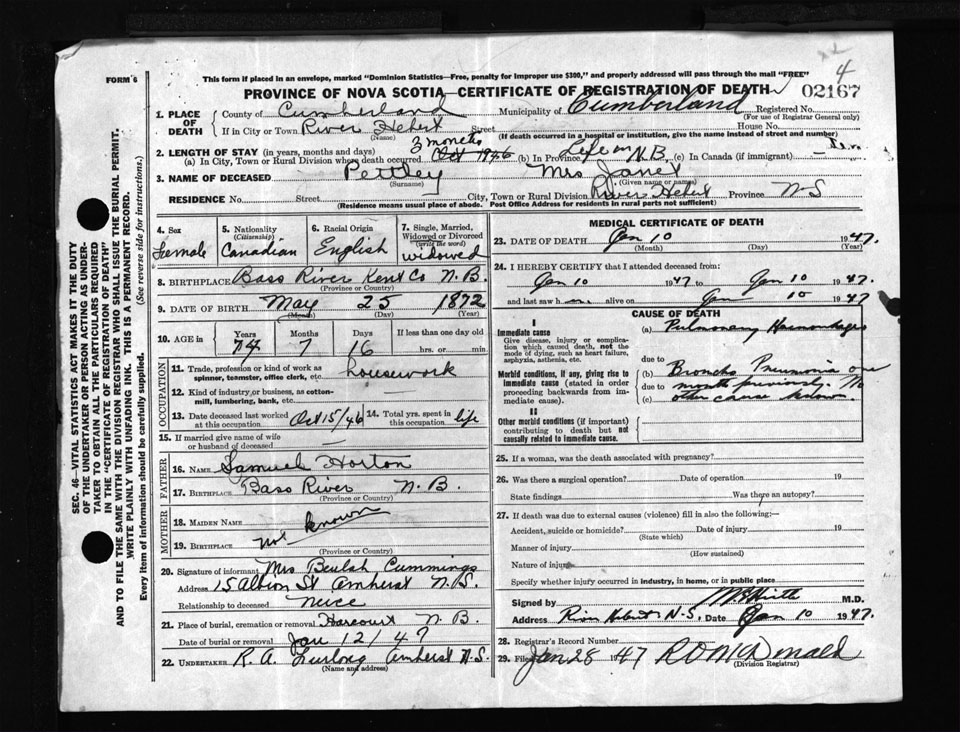 4
FORM 6
This form if placed in an envelope, marked "Dominion Statistics—Free, penalty for improper use $300," and properly addressed will pass through the mail "FREE"
PROVINCE OF NOVA SCOTIA—CERTIFICATE OF REGISTRATION OF DEATH 02167
1. PLACE OF DEATH County of Cumberland Municipality of Cumberland Registered No.
(For use of Registrar General only)
If in City or Town River Hebert Street House No.
(Name) (If death occurred in a hospital or institution, give the name instead of street and number)
2. LENGTH OF STAY (in years, months and days) 3 months
(a) In City, Town or Rural Division where death occurred Oct 1946 (b) In Province Life in N.B. (c) In Canada (if immigrant)
3. NAME OF DECEASED Pettley Mrs Janet
(Surname) (Given name or names)
RESIDENCE No. Street City, Town or Rural Division River Hebert Province N-S
(Residence means usual place of abode. Post Office Address for residents in rural parts not sufficient)
SEC. 46—VITAL STATISTICS ACT MAKES IT THE DUTY
OF THE UNDERTAKER OR PERSON ACTING AS UNDER-
TAKER TO OBTAIN ALL THE PARTICULARS REQUIRED
IN THE "CERTIFICATE OF REGISTRATION OF DEATH"
AND TO FILE THE SAME WITH THE DIVISION REGISTRAR WHO SHALL ISSUE THE BURIAL PERMIT.
WRITE PLAINLY WITH UNFADING INK. THIS IS A PERMANENT RECORD.
Every item of information should be carefully supplied. (See reverse side for instructions.)
4. Sex Female
5. Nationality (Citizenship) Canadian
6. Racial Origin English
7. Single, Married, Widowed or Divorced (Write the word) widowed
8. BIRTHPLACE Bass River Kent Co N.B.
(Province or Country)
9. DATE OF BIRTH May 25 1872
(Month) (Day) (Year)
10. AGE in Years 74 Months 7 Days 16 If less than one day old hrs. or min.
OCCUPATION
11. Trade, profession or kind of work as spinner, teamster, office clerk, etc. housework
12. Kind of industry or business, as cotton-mill, lumbering, bank, etc. —
13. Date deceased last worked at this occupation Oct 15/46 14. Total yrs. spent in this occupation life
15. If married give name of wife or husband of deceased —
FATHER
16. NAME Samuel Horton
17. BIRTHPLACE Bass River N.B.
(Province or Country)
MOTHER
18. MAIDEN NAME
19. BIRTHPLACE not known
(Province or Country)
20. Signature of informant Mrs Beulah Cummings
Address 15 Albion St Amherst N.S.
Relationship to deceased Neice
21. Place of burial, cremation or removal Harcourt N.B.
Date of burial or removal Jan 12/47
22. UNDERTAKER R. A. Furlong Amherst N.S.
(Name and address)
MEDICAL CERTIFICATE OF DEATH
23. DATE OF DEATH Jan 10 1947.
(Month) (Day) (Year)
24. I HEREBY CERTIFY that I attended deceased from:
Jan 10 1947 to Jan 10 1947
and last saw h alive on Jan 10 1947
CAUSE OF DEATH
I
Immediate cause
Give disease, injury or complication which caused death, not the mode of dying, such as heart failure, asphyxia, asthenia, etc.
(a) Pulmonary Haemorrhage
due to
Morbid conditions, if any, giving rise to immediate cause (stated in order proceeding backwards from immediate cause).
(b) Broncho Pneumonia one
due to month previously. No
(c) other cause known.
II
Other morbid conditions (if important) contributing to death but not causally related to immediate cause.
25. If a woman, was the death associated with pregnancy?
26. Was there a surgical operation? Date of operation 19
State findings Was there an autopsy?
27. If death was due to external causes (violence) fill in also the following:—
Accident, suicide or homicide? Date of injury 19
(State which)
Manner of injury
(How sustained)
Nature of injury
Specify whether injury occurred in industry, in home, or in public place
Signed by M.D.
Address River Hebert N-S. Date Jan 10 1947.
28. Registrar's Record Number
29. Filed Jan 28 1947 R O McDonald
(Division Registrar)